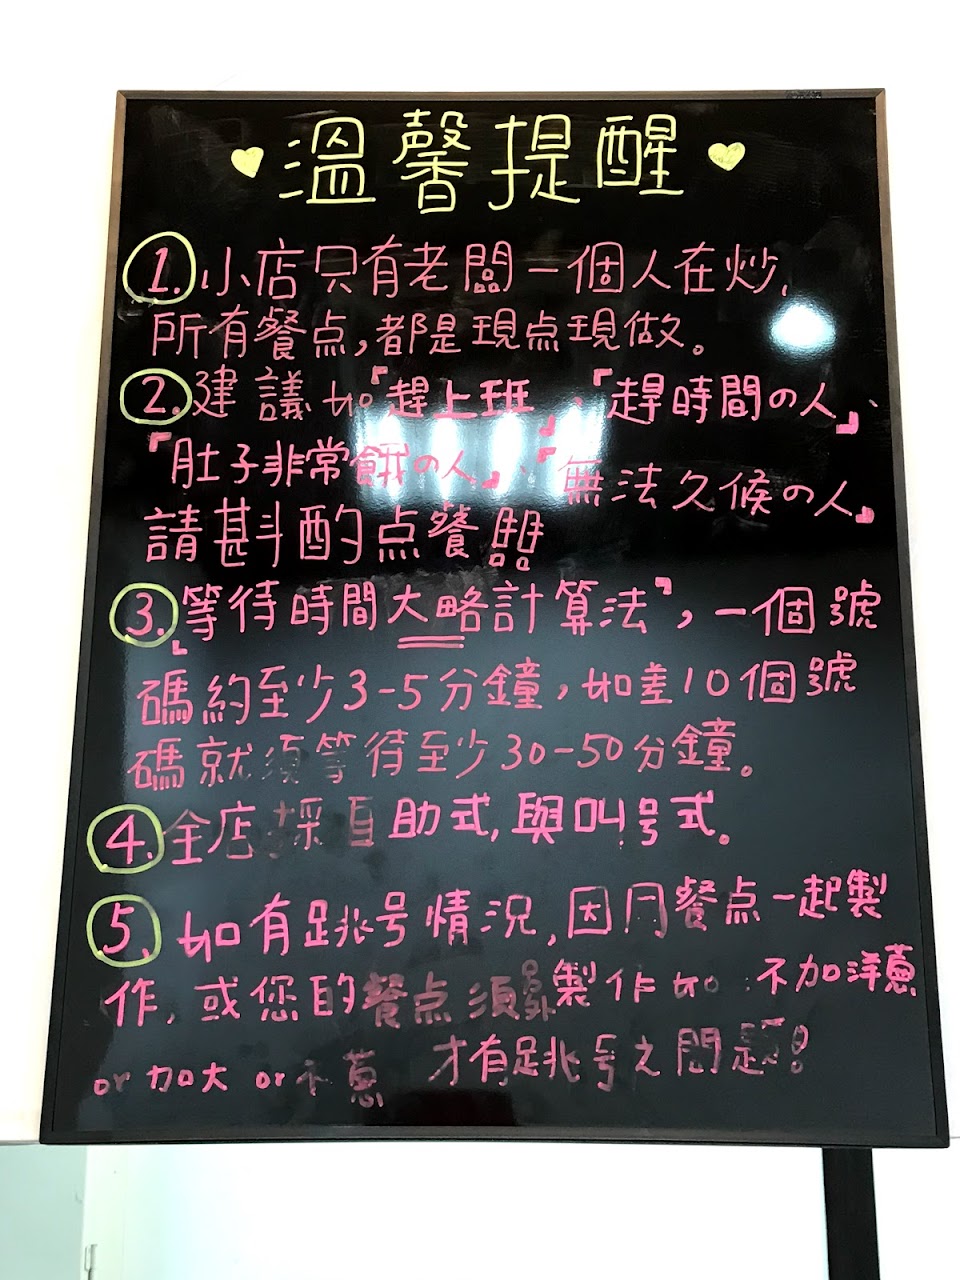 溫馨提醒
1.小店只有老闆一個人在炒,
所有餐点,都是現点現做。
2.建議如『趕上班』、『趕時間の人』、
『肚子非常餓の人』、『無法久候の人』
請斟酌点餐!!!
3.『等待時間大略計算法』,一個號
碼約至少3-5分鐘,如差10個號
碼就須等待至少30-50分鐘。
4.全店採自助式,與叫号式。
5.如有跳号情況,因同餐点一起製
作,或您的餐点須另外製作如:不加洋蔥
or加大or不蔥 才有跳号之問題!